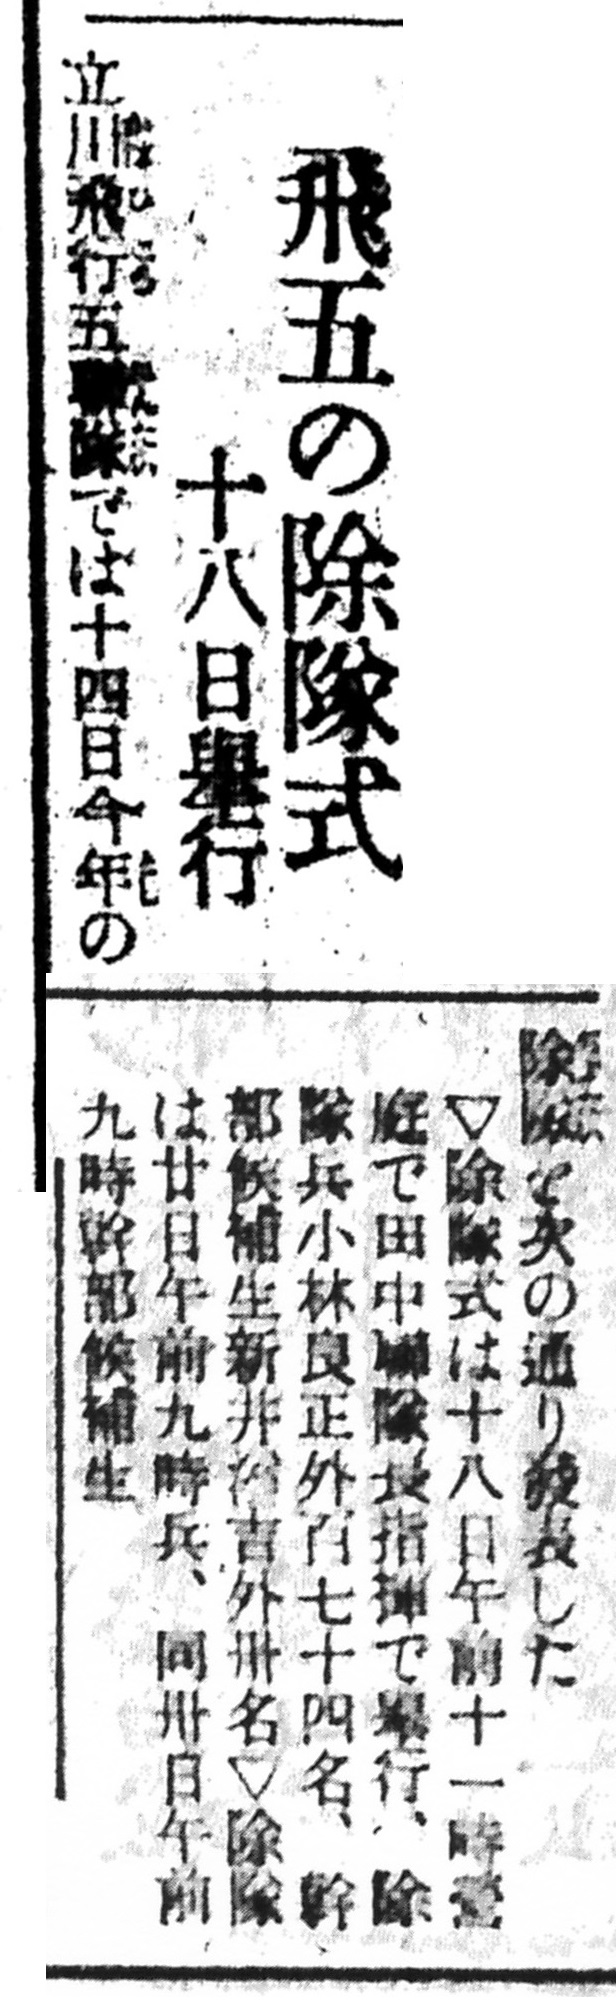 飛五の除隊式
十八日擧行
立川飛行五聯隊では十四日今年の
除隊を次の通り發表した
▽除隊式は十八日午前十一時營
庭で田中聯隊長指揮で擧行、除
隊兵小林良正外百七十四名、幹
部候補生新井 吉外卅名▽除隊
は廿日午前九時兵、同卅日午前
九時幹部候補生